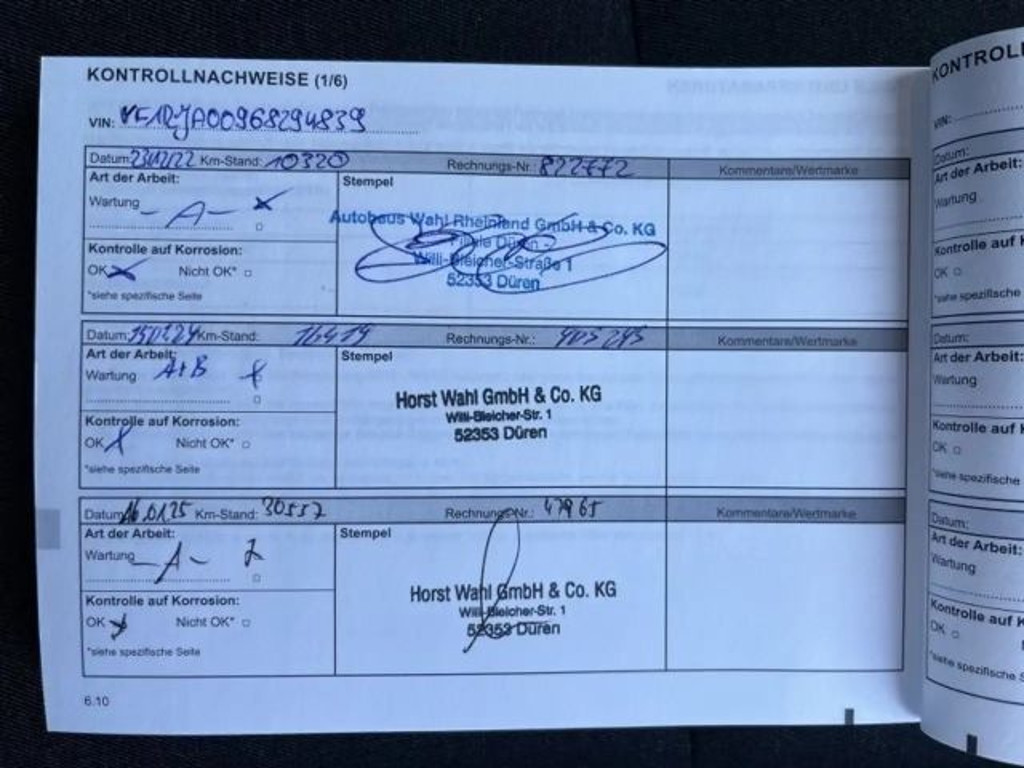 KONTROLLNACHWEISE (1/6)
VIN: VF1RJA00968294839
Datum: 23.12.22 Km-Stand: 10320 Rechnungs-Nr.: 822772 Kommentare/Wertmarke
Art der Arbeit: Stempel
Wartung - A -
Autohaus Wahl Rheinland GmbH & Co. KG
Filiale Düren
Willi-Bleicher-Straße 1
52353 Düren
Kontrolle auf Korrosion:
OK Nicht OK*
*siehe spezifische Seite
Datum: Km-Stand: 16419 Rechnungs-Nr.: 405245 Kommentare/Wertmarke
Art der Arbeit: Stempel
Wartung A+B
Horst Wahl GmbH & Co. KG
Willi-Bleicher-Str. 1
52353 Düren
Kontrolle auf Korrosion:
OK Nicht OK*
*siehe spezifische Seite
Datum: 16.01.25 Km-Stand: 30557 Rechnungs-Nr.: 47965 Kommentare/Wertmarke
Art der Arbeit: Stempel
Wartung - A -
Horst Wahl GmbH & Co. KG
Willi-Bleicher-Str. 1
52353 Düren
Kontrolle auf Korrosion:
OK Nicht OK*
*siehe spezifische Seite
6.10
KONTROLL
VIN:
Datum:
Art der Arbeit:
Wartung
Kontrolle auf K
OK
*siehe spezifische
Datum:
Art der Arbeit:
Wartung
Kontrolle auf K
OK
*siehe spezifische
Datum:
Art der Arbeit:
Wartung
Kontrolle auf K
OK
*siehe spezifische S